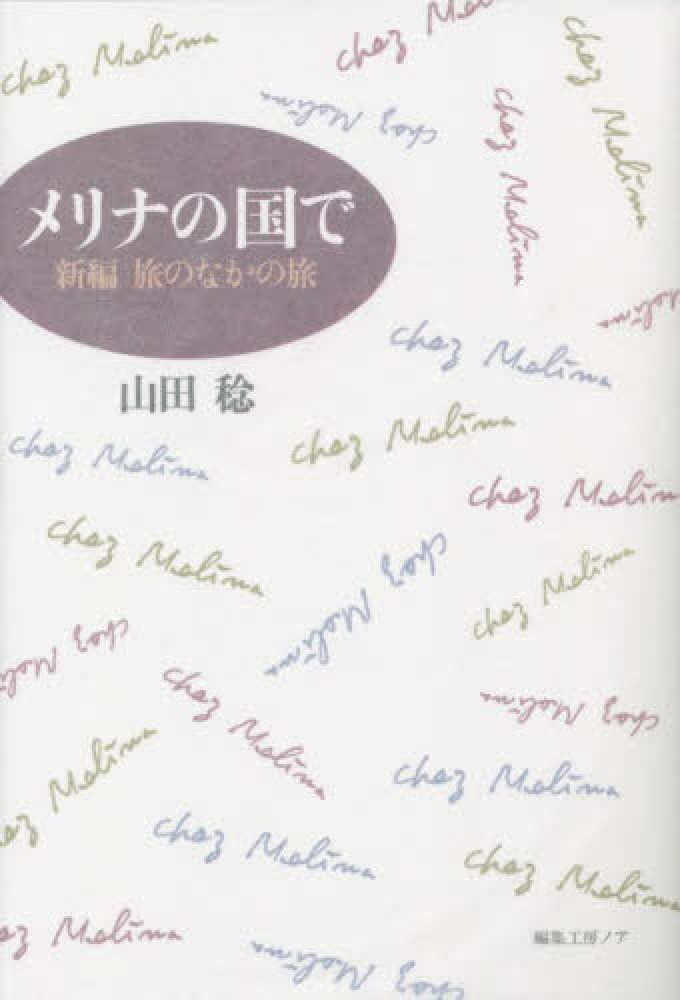 chez Melina
chez Me
chez Melina
chez Melina
chez Melina
メリナの国で
新編 旅のなかの旅
elina
chez Melina
山田 稔
chez Melina
chez Melina
chez Melina
chez Melina
chez Melina
chez Melina
chez Melina
chez Melina
chez Melina
ez Melina
chez Melina
chez Melina
chez Melina
ez Melina
編集工房ノア
chez Melina